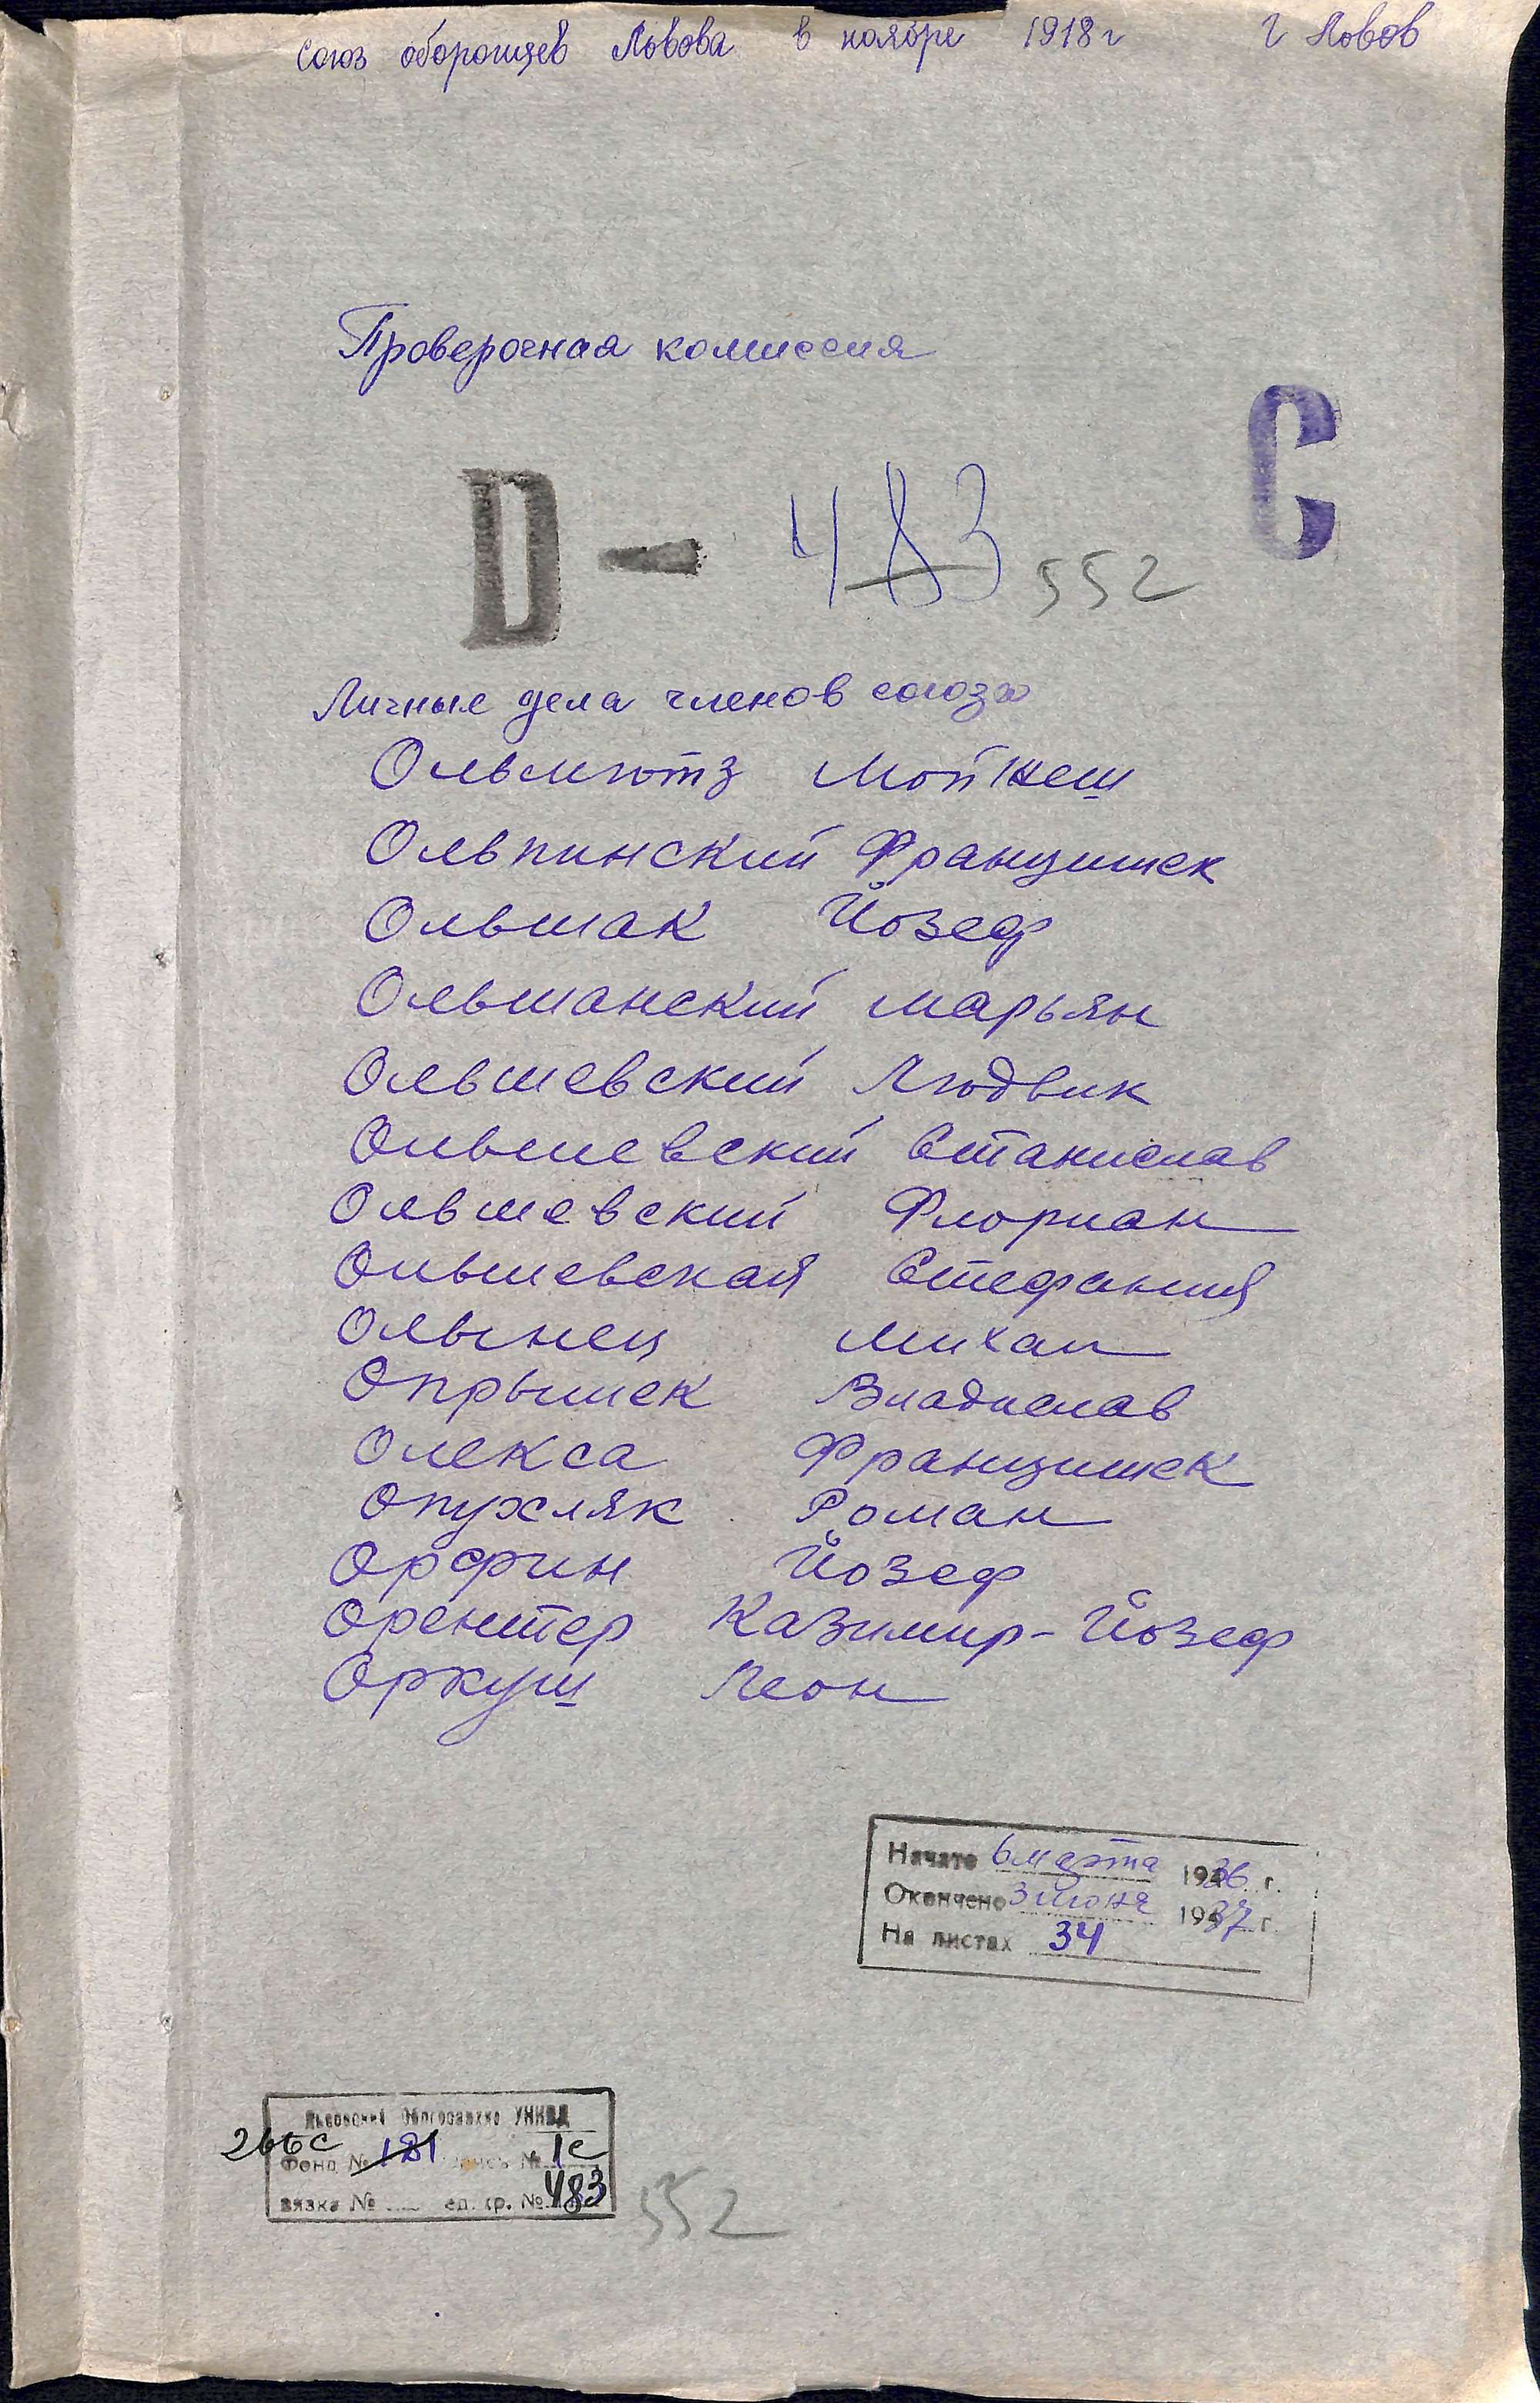 Союз оборонцев Львова в ноябре 1918 г г Львов
Проверочная комиссия
С
D - 483 552
Личные дела членов союза
Ольмютз Мойжеш
Ольпинский Францишек
Ольшак Йозеф
Ольшанский Марьян
Ольшевский Людвик
Ольшевский Станислав
Ольшевский Флориан
Ольшевская Стефания
Олынец Михал
Опрышек Владислав
Олекса Францишек
Опухляк Роман
Орфин Йозеф
Орентер Казимир-Йозеф
Оркуш Леон
Начато 6 марта 1936 г.
Окончено 3 июня 1937 г.
На листах 34
Львовский Облгосархив УНКВД
266с Фонд № 181 опись № 1с
вязка № ед. хр. № 483
552